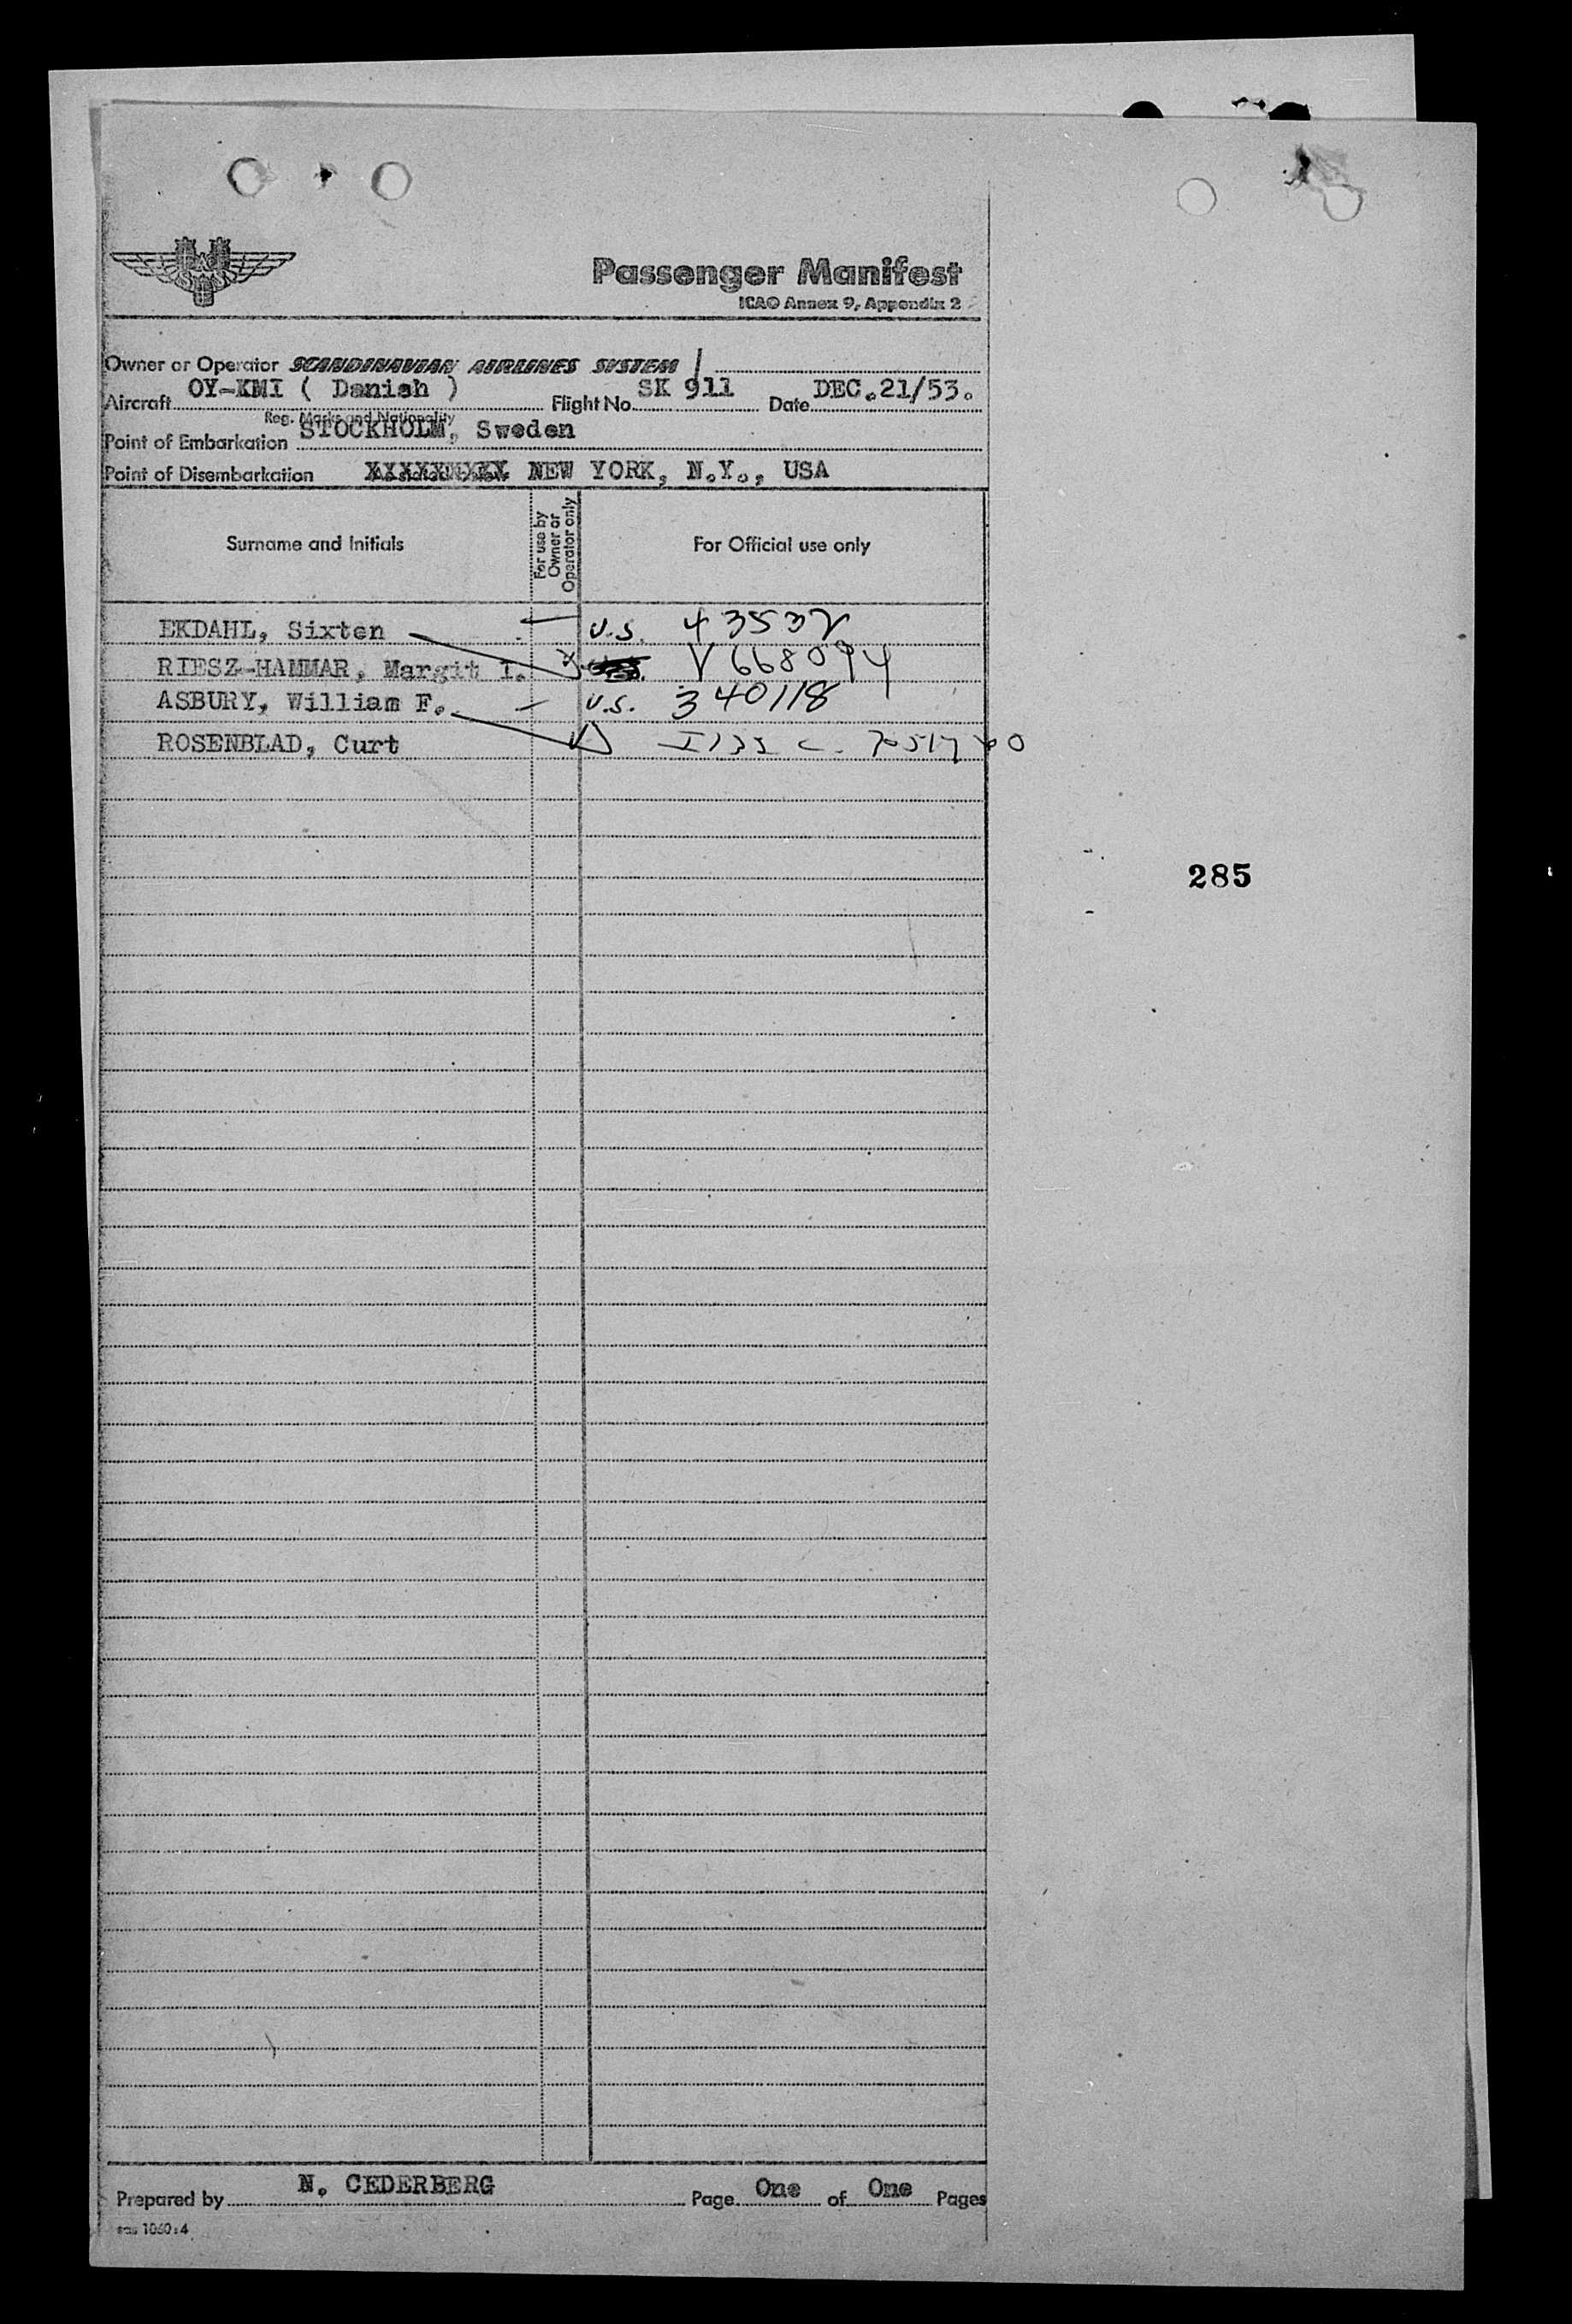 Passenger Manifest
ICAO Annex 9, Appendix 2
Owner or Operator SCANDINAVIAN AIRLINES SYSTEM
Aircraft OY-KMI ( Danish ) Flight No. SK 911 Date DEC.21/53.
Reg. Marks and Nationality
Point of Embarkation STOCKHOLM, Sweden
Point of Disembarkation NEW YORK, N.Y., USA
Surname and Initials For use by Owner or Operator only For Official use only
EKDAHL, Sixten U.S. 43532
RIESZ-HAMMAR, Margit I. V 668094
ASBURY, William F. U.S. 340118
ROSENBLAD, Curt
285
Prepared by N. CEDERBERG Page One of One Pages
sas 1060:4